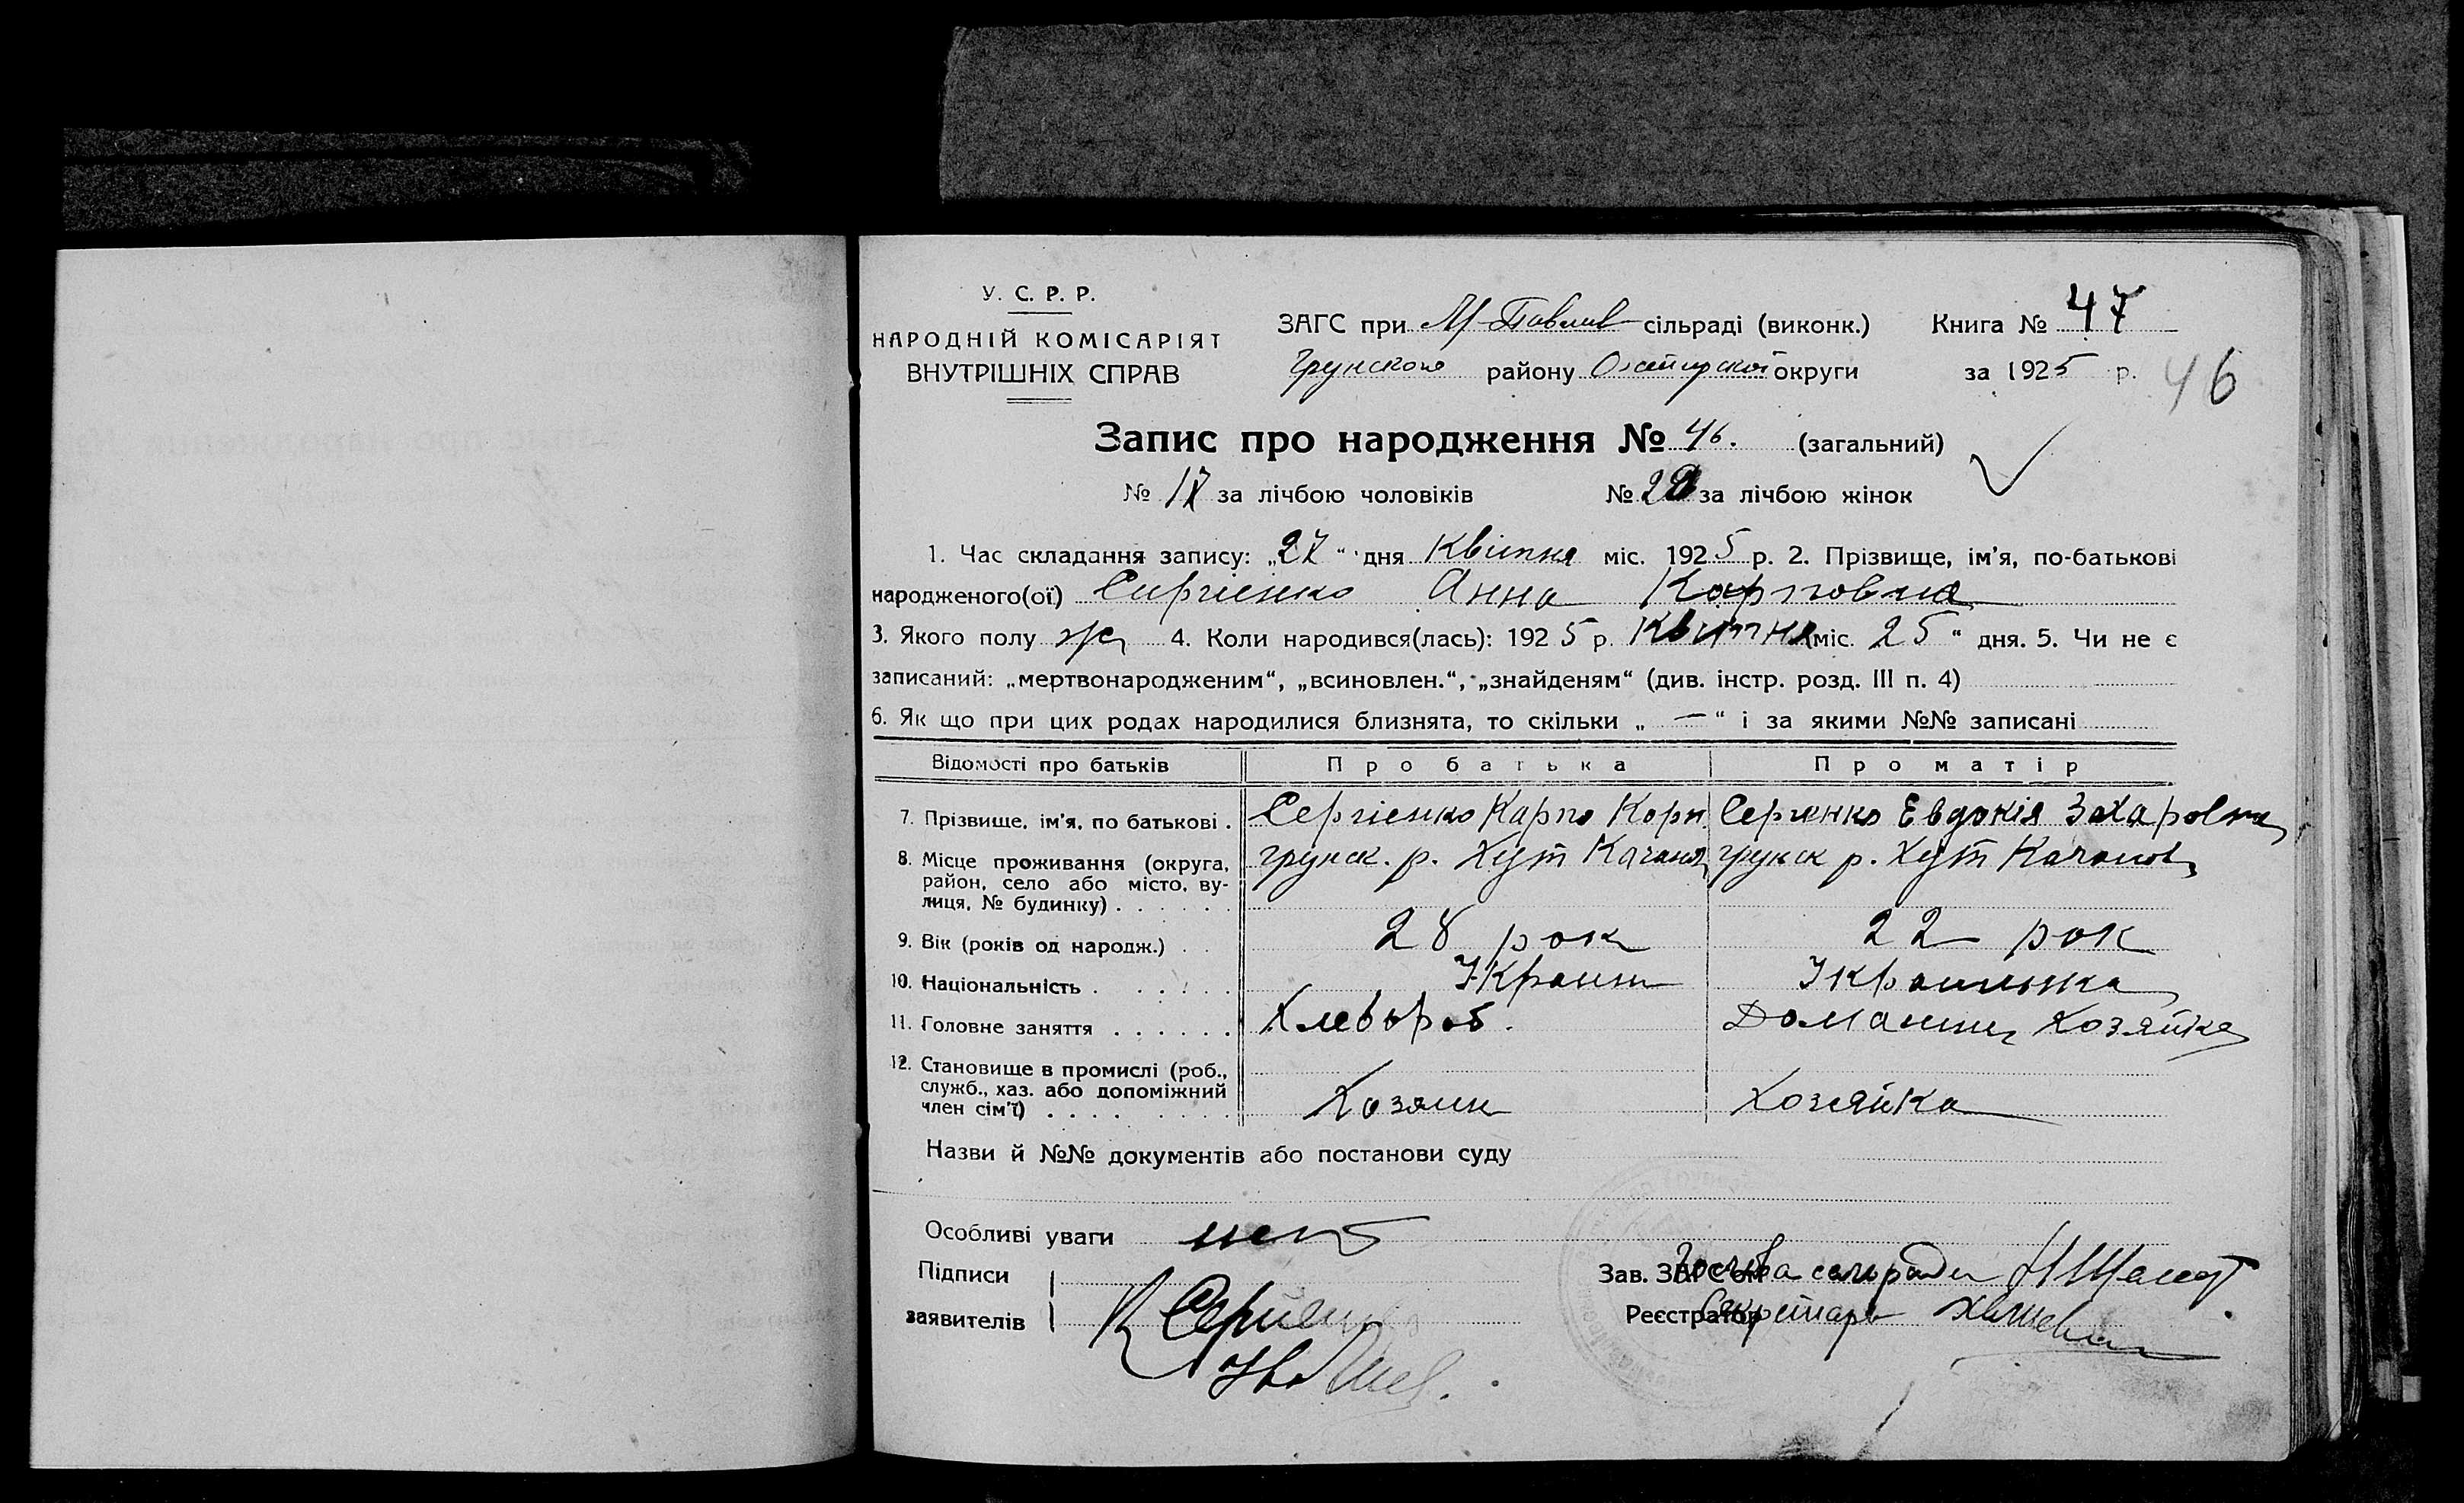 У. С. Р. Р.
НАРОДНІЙ КОМІСАРІЯТ
ВНУТРІШНІХ СПРАВ
ЗАГС при М-Павлів сільраді (виконк.) Книга № 47
Грунского району Охтирскої округи за 1925 р. 46
Запис про народження № 46. (загальний)
№ 17 за лічбою чоловіків № за лічбою жінок
1. Час складання запису: „27“ дня Квітня міс. 1925 р. 2. Прізвище, ім'я, по-батькові
народженого(ої) Сиргієнко Анна Карповна
3. Якого полу ж 4. Коли народився(лась): 1925 р. Квітня міс. 25 “ дня. 5. Чи не є
записаний: „мертвонародженим“, „всиновлен.“, „знайденям“ (див. інстр. розд. III п. 4)
6. Як що при цих родах народилися близнята, то скільки „ — “ і за якими №№ записані
Відомості про батьків Про батька Про матір
7. Прізвище, ім'я, по батькові . Сергієнко Карпо Корн. Сергієнко Евдокія Захаровна
8. Місце проживання (округа, грунск. р. Хут Качаня грунск р. Хут Качанов
район, село або місто, ву-
лиця, № будинку) . . . . . .
9. Вік (років од народж.) . . 28 рок 22 рок
10. Національність . . . . . . Україн Українка
11. Головне заняття . . . . . . Хлебороб. Домашня Хозяйка
12. Становище в промислі (роб.,
служб., хаз. або допоміжний
член сім'ї) . . . . . . . Хозяин Хозяйка
Назви й №№ документів або постанови суду
Особливі уваги нет
Підписи Зав. ЗАГС'ом Голова сельради
заявителів К Сергиенко Реєстратор Секретарь